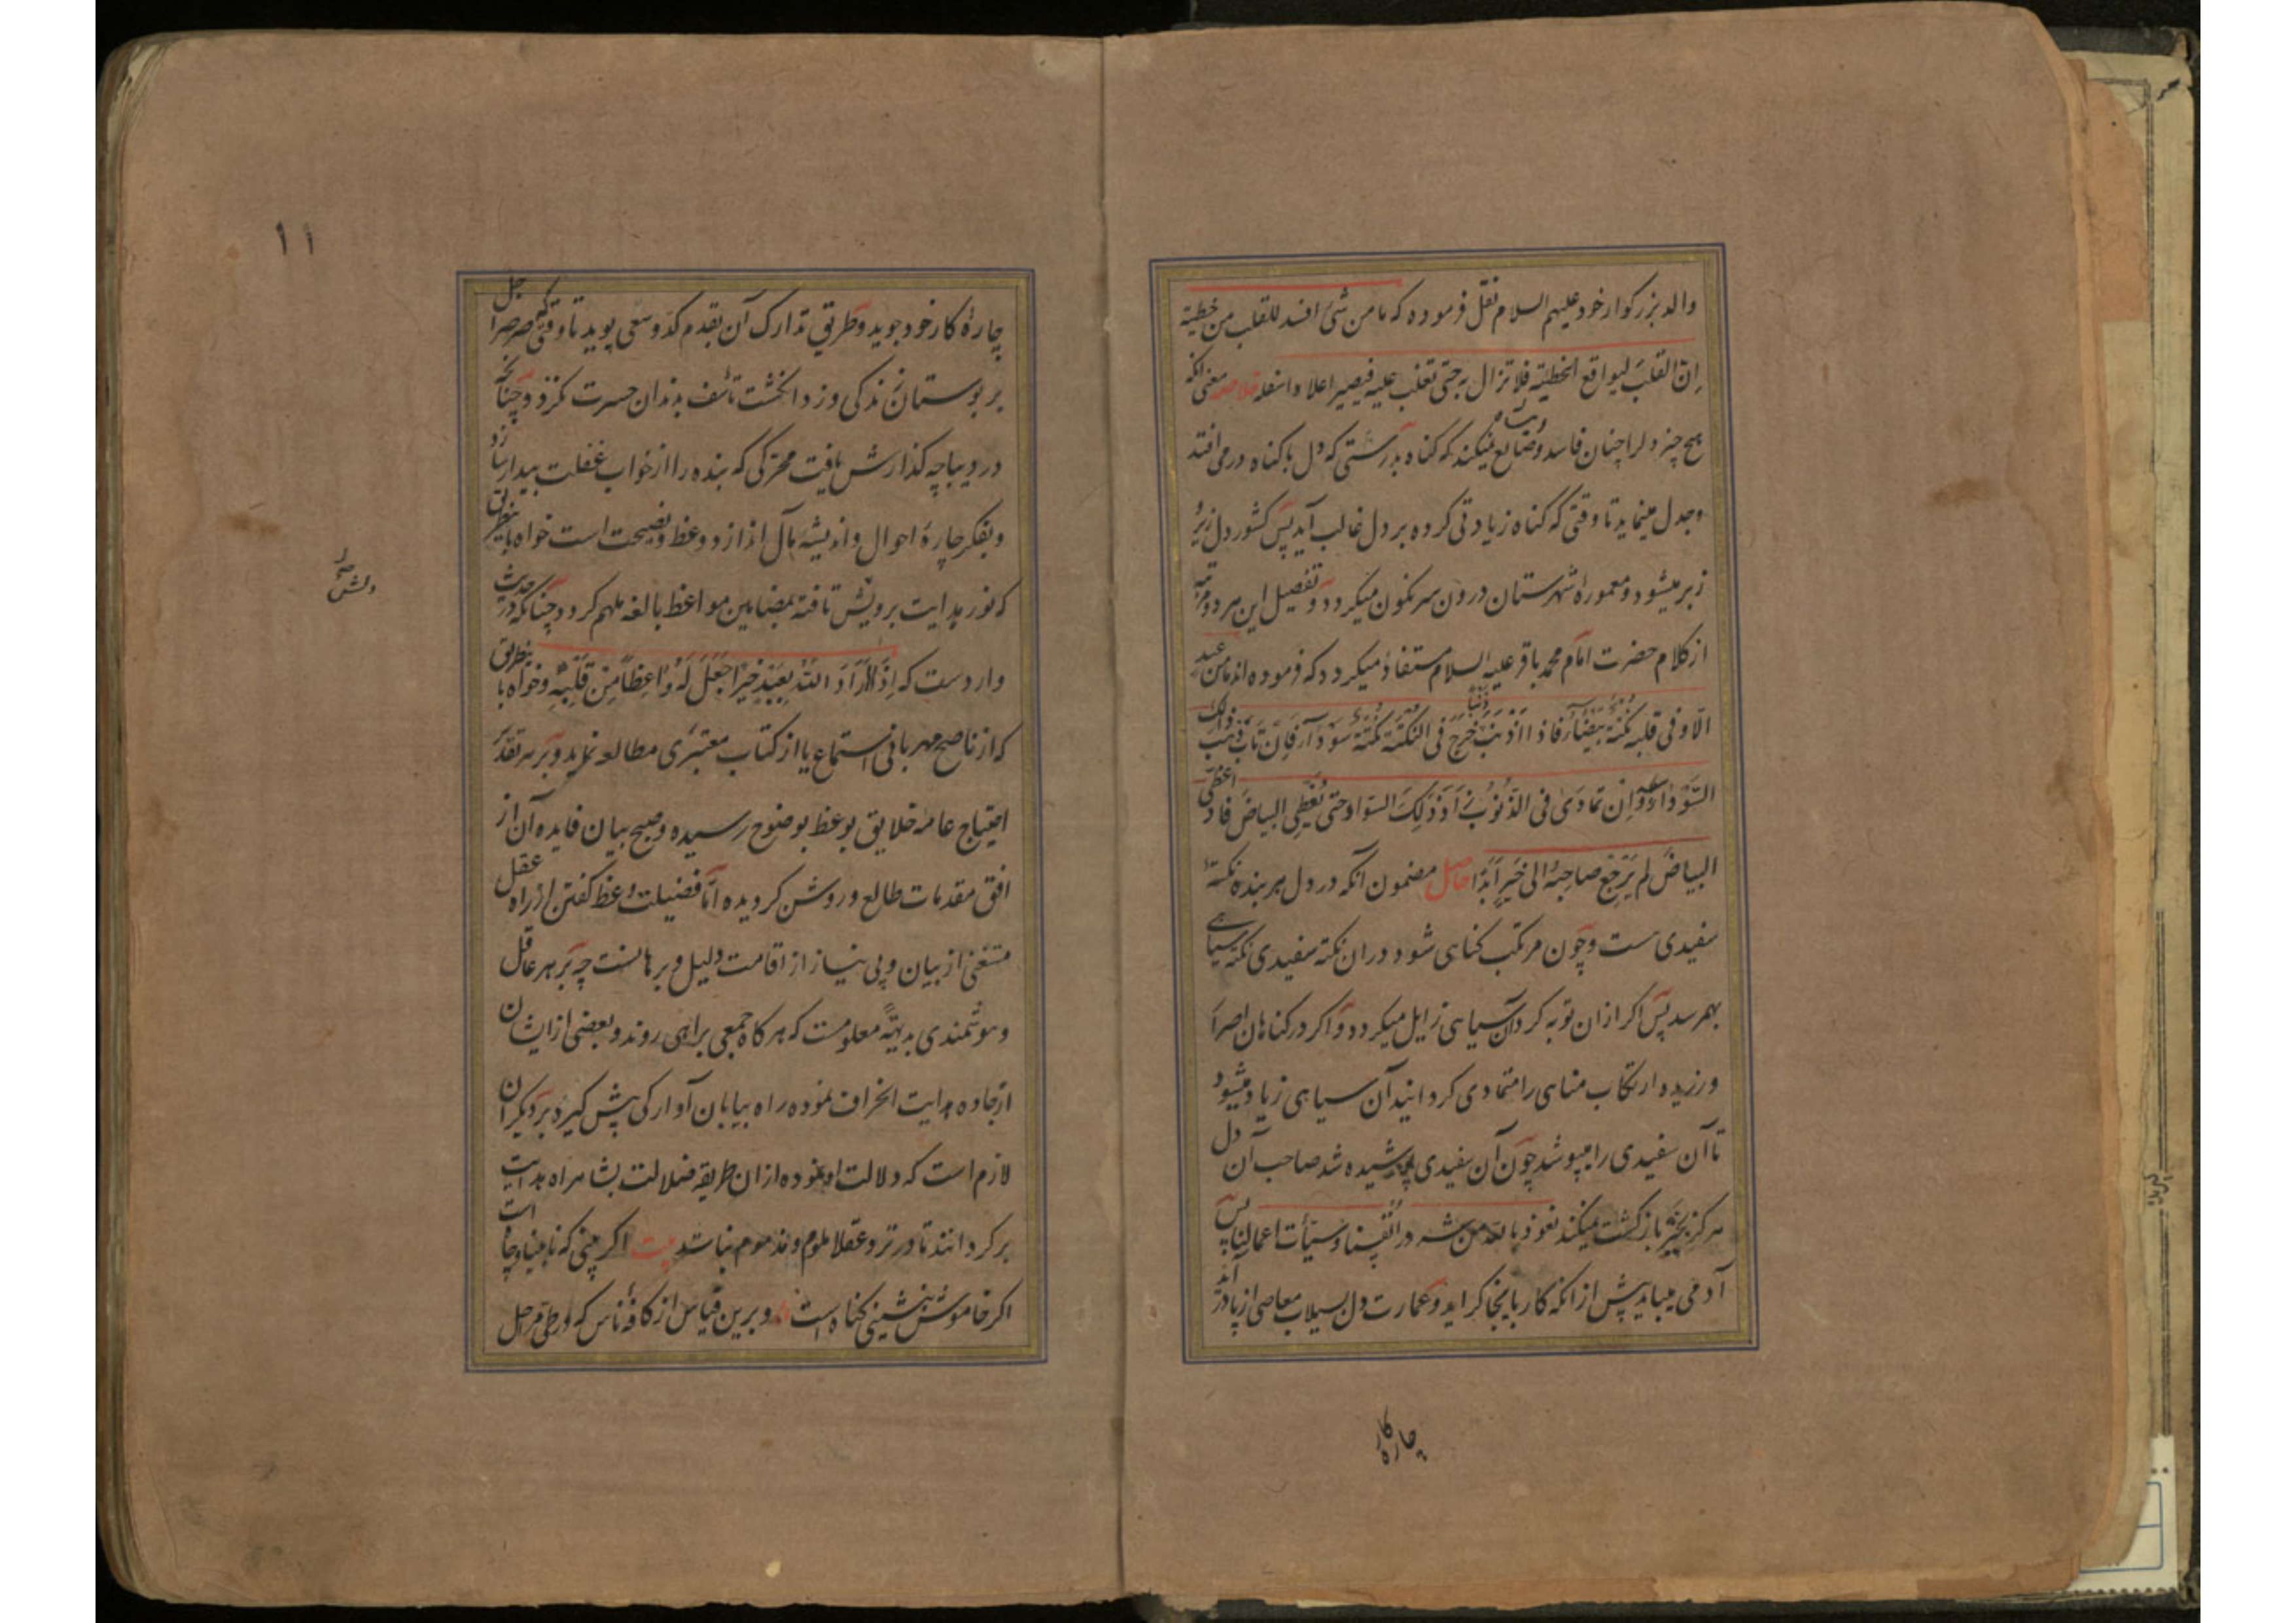 والد بزرکوار خود علیهم السلام نقل فرموده که ما من شئ افسد للقلب من خطیئه
ان القلب لیواقع الخطیئه فلا تزال به حتی تغلب علیه فیصیر اعلاه اسفله خلاصه معنی انکه
هیچ چیز دلرا چنان فاسد وضایع نمیکند که کناه بدرستی که دل با کناه در می افتد
وجدل مینماید تا وقتی که کناه زیادتی کرده بر دل غالب آید پس کشور دل زیر و
زبر میشود و معموره شهرستان درون سرنکون میکردد وتفصیل این هر دو مرتبه
از کلام حضرت امام محمد باقر علیه السلام مستفاد میکردد که فرموده اند ما من عبد
الا وفی قلبه نکتة بیضاء فاذا اذنب ذنبا خرج فی النکتة نکتة سوداء فان تاب ذهب ذلک
السواد وان تمادی فی الذنوب زاد ذلک السواد حتی تغطی البیاض فاذا غطی
البیاض لم یرجع صاحبه الی خیر ابدا حاصل مضمون آنکه در دل هر بنده نکتهٔ
سفیدی ست وچون مرتکب کناهی شود در ان نکته سفیدی نکته سیاهی
بهم رسد پس اکر ازان توبه کرد آن سیاهی زایل میکردد واکر در کناهان اصرار
ورزیده ارتکاب مناهی را متمادی کرد انید آن سیاهی زیاد میشود
تا آن سفیدی را میپوشد چون آن سفیدی پوشیده شد صاحب آن دل
هرکز بخیر بازکشت نمیکند نعوذ بالله من شرور انفسنا وسیئات اعمالنا پس
آدمی میباید پیش از انکه کار باینجا کراید وعمارت دل بسیلاب معاصی از پا در آید
چاره کار
۱۱
چارهٔ کار خود جوید وطریق تدارک آن بقدم کد وسعی پوید تا وقتی که صرصر اجل
بر بوستان زندکی وزد انکشت تأسف بدندان حسرت نکزد وچنانچه
در دیباچه کذارش یافت محرکی که بنده را از خواب غفلت بیدار سازد
وبفکر چارهٔ احوال واندیشه مآل اندازد وعظ ونصیحت است خواه باینطریق
که نور هدایت برویش تافته بمضامین مواعظ بالغه ملهم کردد چنانکه در حدیث
وارد ست که اذا اراد الله بعبد خیرا جعل له واعظا من قلبه وخواه باینطریق
که از ناصح مهربانی استماع یا از کتاب معتبری مطالعه نماید وبر هر تقدیر
احتیاج عامه خلایق بوعظ بوضوح رسیده وصبح بیان فایده آن از
افق مقدمات طالع وروشن کردیده اما فضیلت وعظ کفتن از راه عقل
مستغنی از بیان وبی نیاز از اقامت دلیل وبرهانست چه بر هر عاقل
وهوشمندی بدیهة معلومست که هرکاه جمعی براهی روند وبعضی از ایشان
از جاده هدایت انحراف نموده راه بیابان آوارکی پیش کیرد بر دیکران
لازم است که دلالت او نموده از ان طریقه ضلالت بشاهراه هدایت
برکردانند تا در نزد عقلا ملوم ومذموم نباشند بیت اکر بینی که نابینا وچاه است
اکر خاموش بنشینی کناه است وبرین قیاس از کافهٔ ناس که در طی مراحل